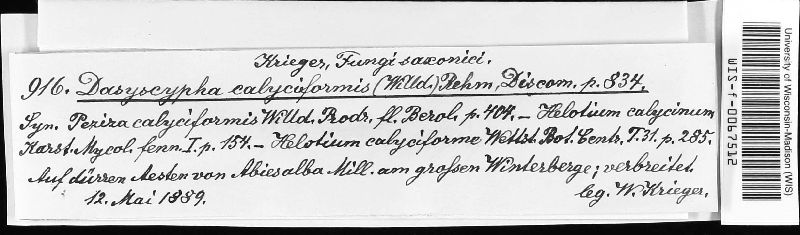 Krieger, Fungi saxonici.
916. Dasyscypha calyciformis (Willd.) Rehm, Discom. p. 834.
Syn. Peziza calyciformis Willd. Prodr. fl. Berol. p. 404. — Helotium calycinum
Karst. Mycol. fenn. I. p. 154. — Helotium calyciforme Wettst. Bot. Centr. T. 31. p. 285.
Auf dürren Aesten von Abies alba Mill. am grossen Winterberge; verbreitet.
12. Mai 1889.
leg. W. Krieger.
University of Wisconsin-Madison (WIS)
WIS-f-0067532